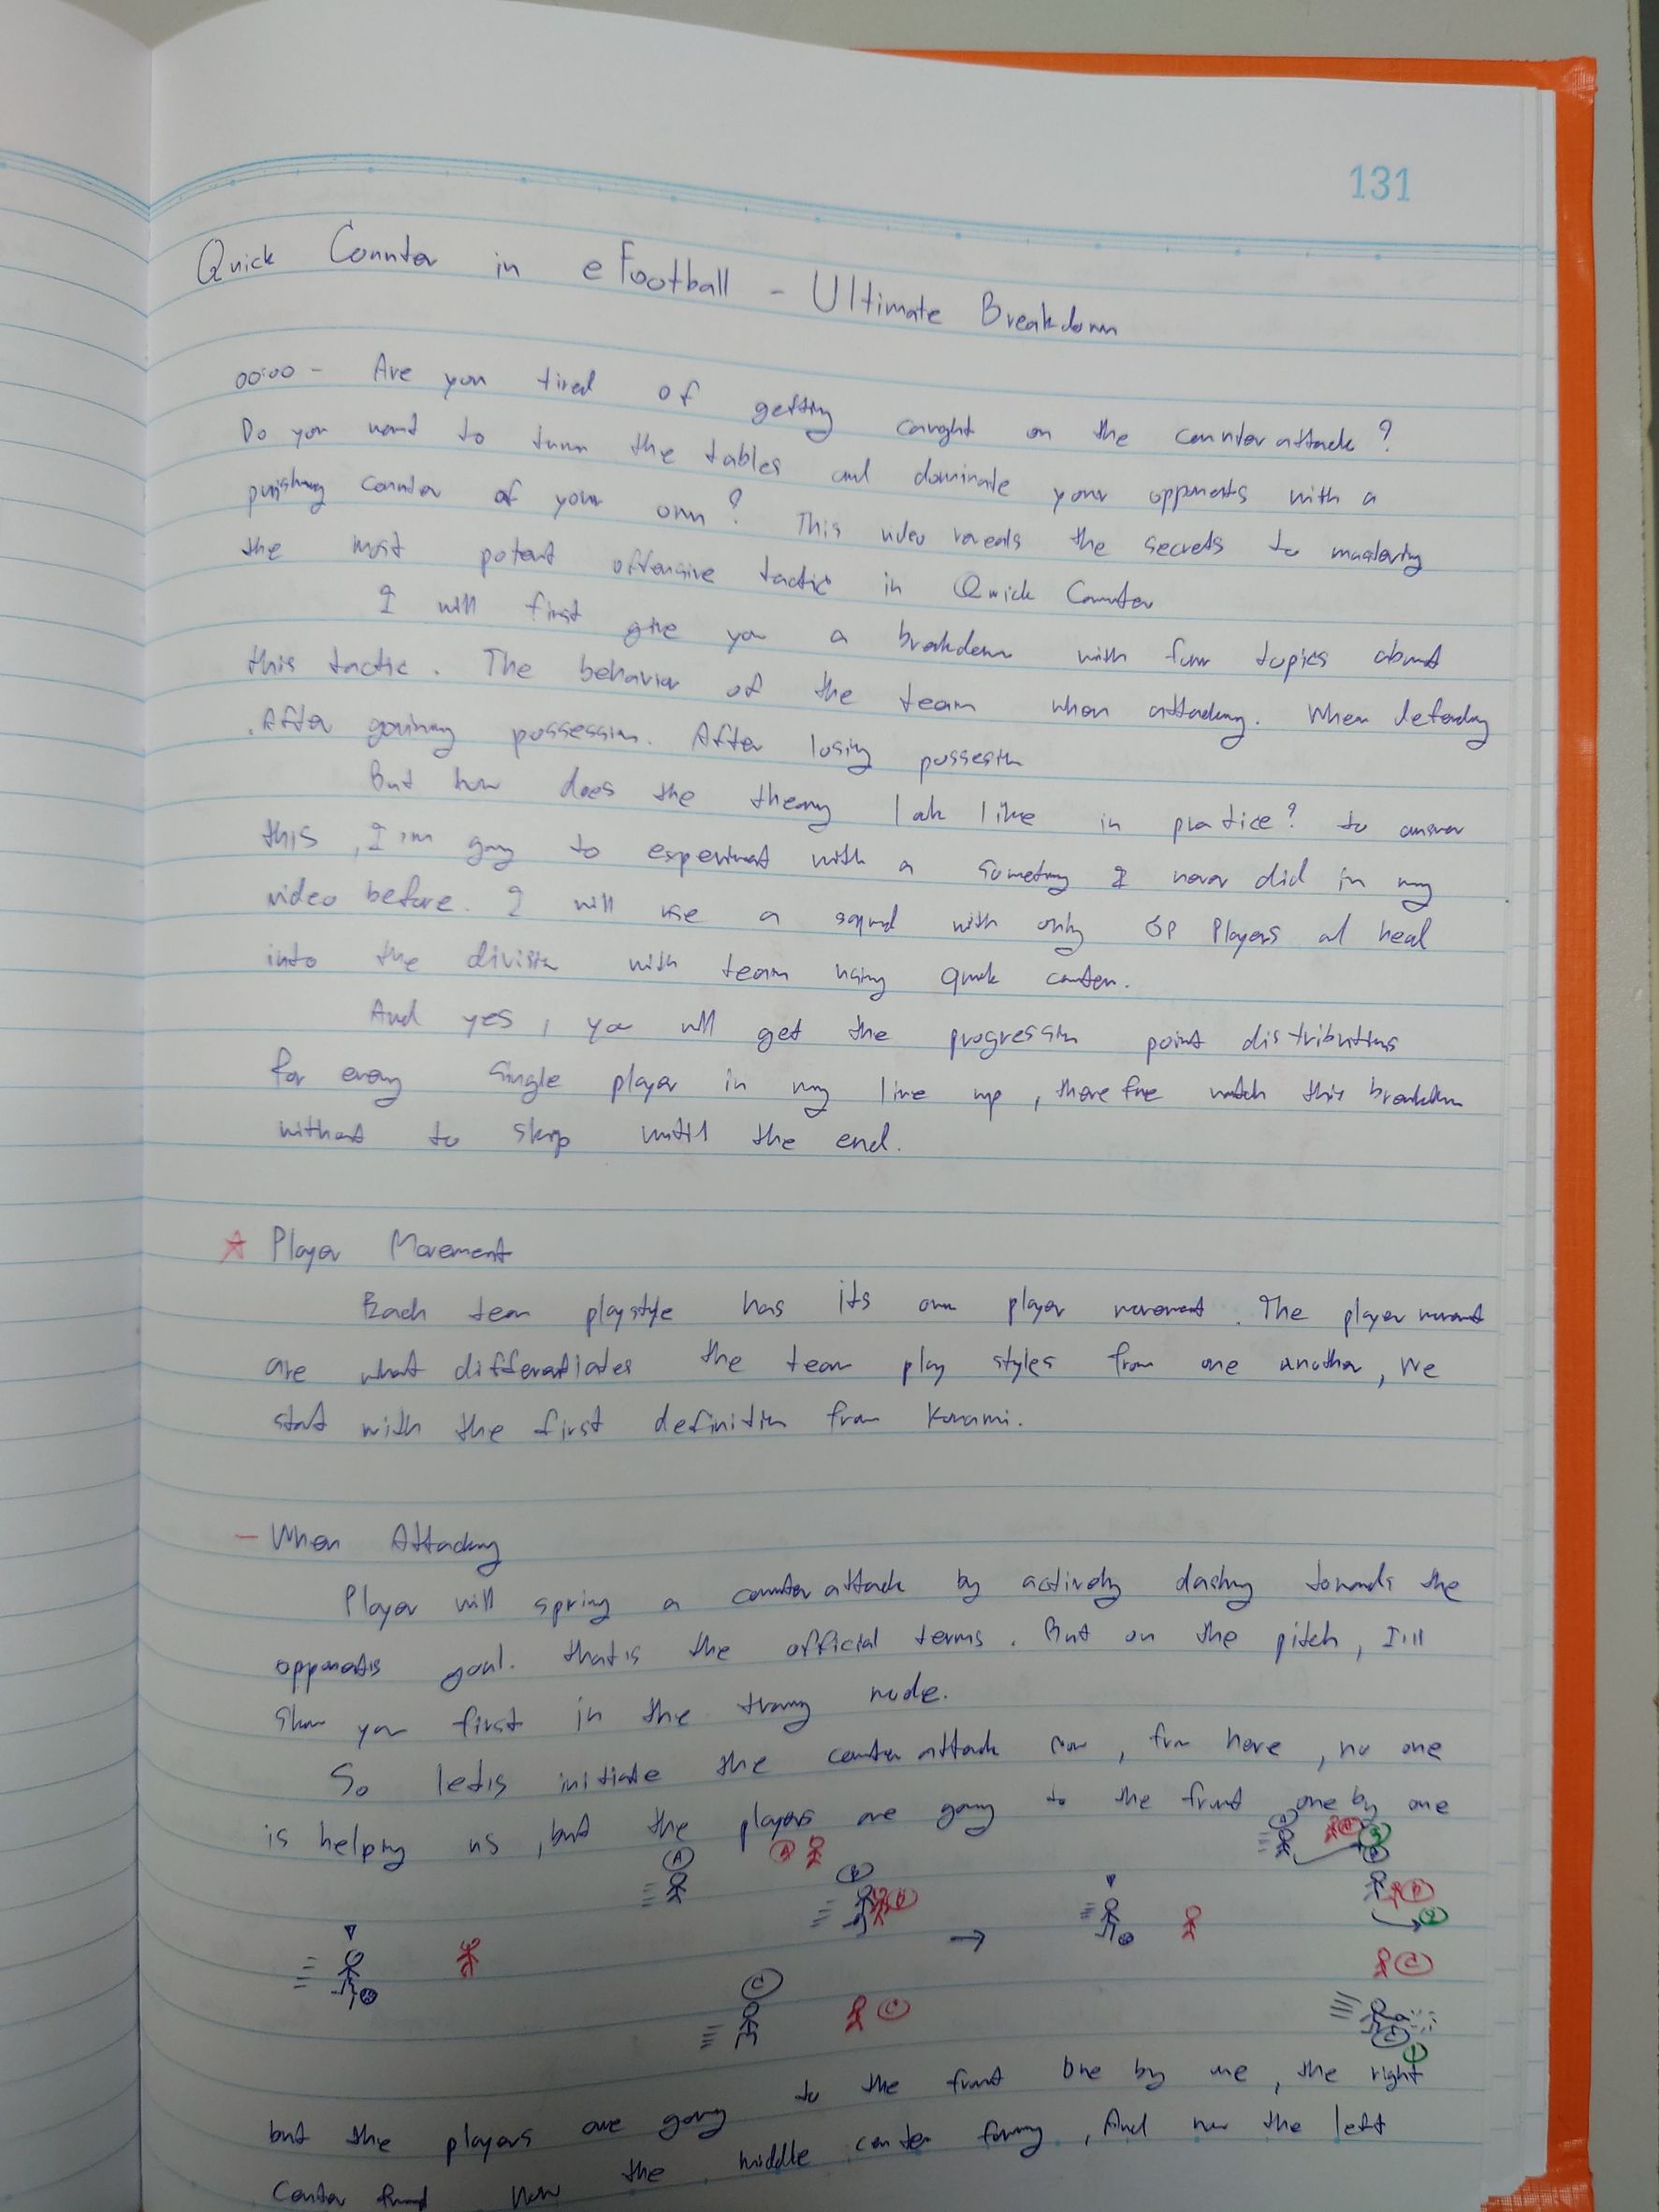 131
Quick Counter in eFootball - Ultimate Breakdown
00:00 - Are you tired of getting caught on the counter attack?
Do you want to turn the tables and dominate your opponents with a
punishing counter of your own? This video reveals the secrets to mastering
the most potent offensive tactic in Quick Counter
I will first give you a breakdown with four topics about
this tactic. The behavior of the team when attacking. When defending
. After gaining possession. After losing possession
But how does the theory look like in practice? to answer
this, I'm going to experiment with a something I never did in my
video before. I will use a squad with only GP Players and head
into the division with team using quick counter.
And yes, you will get the progression point distributions
for every single player in my line up, therefore watch this breakdown
without to skip until the end.
Player Movement
Each team playstyle has its own player movement. The player movement
are what differentiates the team play styles from one another, We
start with the first definition from Konami.
- When Attacking
Player will spring a counter attack by actively dashing towards the
opponent's goal. that's the official terms. But on the pitch, I'll
show you first in the mode.
So let's initiate the counter attack now, from here, no one
is helping us, but the players are going to the front one by one
A A
C C C
but the players are going to the front one by one, the right
center now the middle center, And now the left